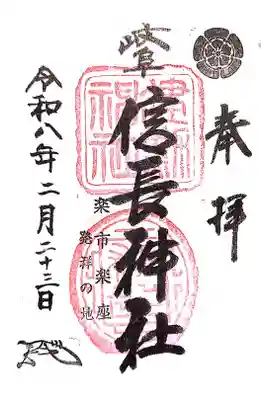 奉拝
岐阜
信長神社
楽市楽座
発祥の地
令和八年二月二十三日